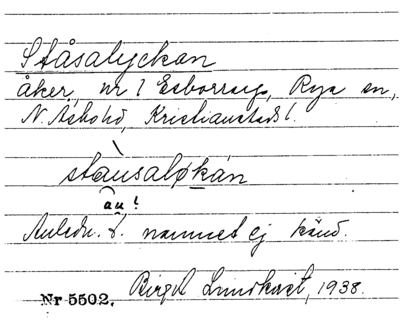 Ståsalyckan
åker, nr 1 Esborrarp, Rya sn,
N. Åsbo hd, Kristianstads l.
stàusaløkán
au!
Anledn. t. namnet ej känd.
Nr 5502. Birgit Lundkvist, 1938.